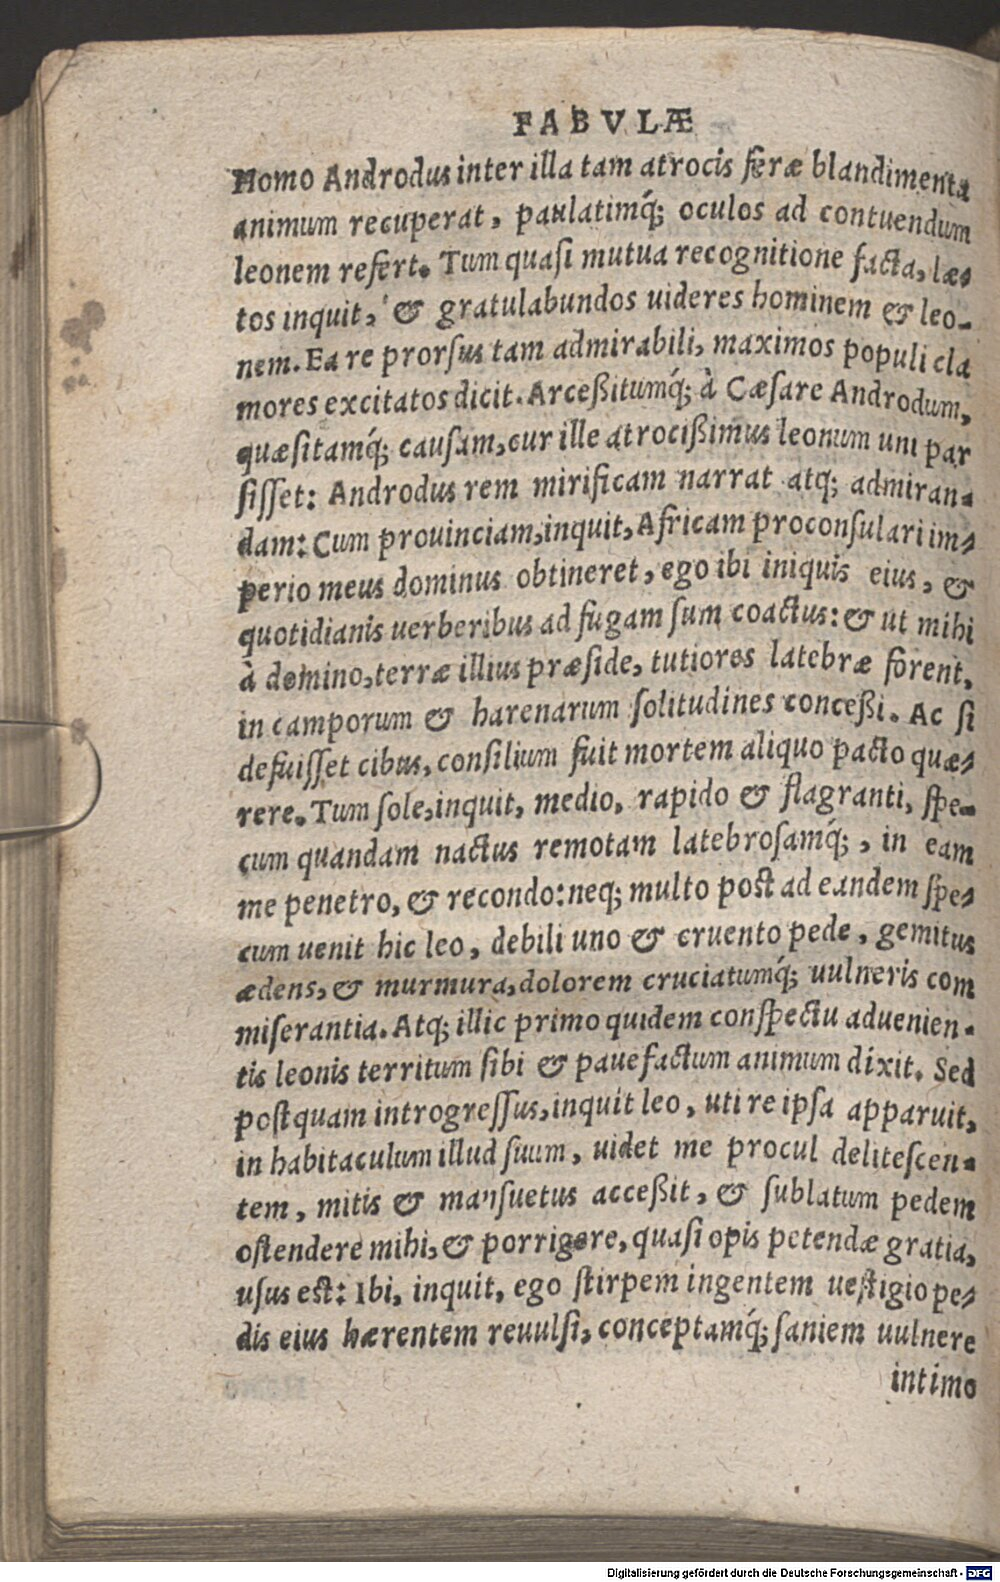 FABVLÆ
Homo Androdus inter illa tam atrocis feræ blandimenta
animum recuperat, paulatimq́; oculos ad contuendum
leonem refert. Tum quasi mutua recognitione facta, læ-
tos inquit, & gratulabundos uideres hominem & leo-
nem. Ea re prorsus tam admirabili, maximos populi cla
mores excitatos dicit. Arceßitumq́; à Cæsare Androdum,
quæsitamq́; causam, cur ille atrocißimus leonum uni par
sisset: Androdus rem mirificam narrat atq; admiran-
dam: Cum prouinciam, inquit, Africam proconsulari im-
perio meus dominus obtineret, ego ibi iniquis eius, &
quotidianis uerberibus ad fugam sum coactus: & ut mihi
à domino, terræ illius præside, tutiores latebræ forent,
in camporum & harenarum solitudines conceßi. Ac si
defuisset cibus, consilium fuit mortem aliquo pacto quæ-
rere. Tum sole, inquit, medio, rapido & flagranti, spe-
cum quandam nactus remotam latebrosamq́;, in eam
me penetro, & recondo: neq; multo post ad eandem spe-
cum uenit hic leo, debili uno & cruento pede, gemitus
ædens, & murmura, dolorem cruciatumq́; uulneris com
miserantia. Atq; illic primo quidem conspectu aduenien-
tis leonis territum sibi & pauefactum animum dixit. Sed
postquam introgressus, inquit leo, uti re ipsa apparuit,
in habitaculum illud suum, uidet me procul delitescen-
tem, mitis & mansuetus acceßit, & sublatum pedem
ostendere mihi, & porrigere, quasi opis petendæ gratia,
usus est: Ibi, inquit, ego stirpem ingentem uestigio pe-
dis eius hærentem reuulsi, conceptamq́; saniem uulnere
intimo
Digitalisierung gefördert durch die Deutsche Forschungsgemeinschaft - DFG